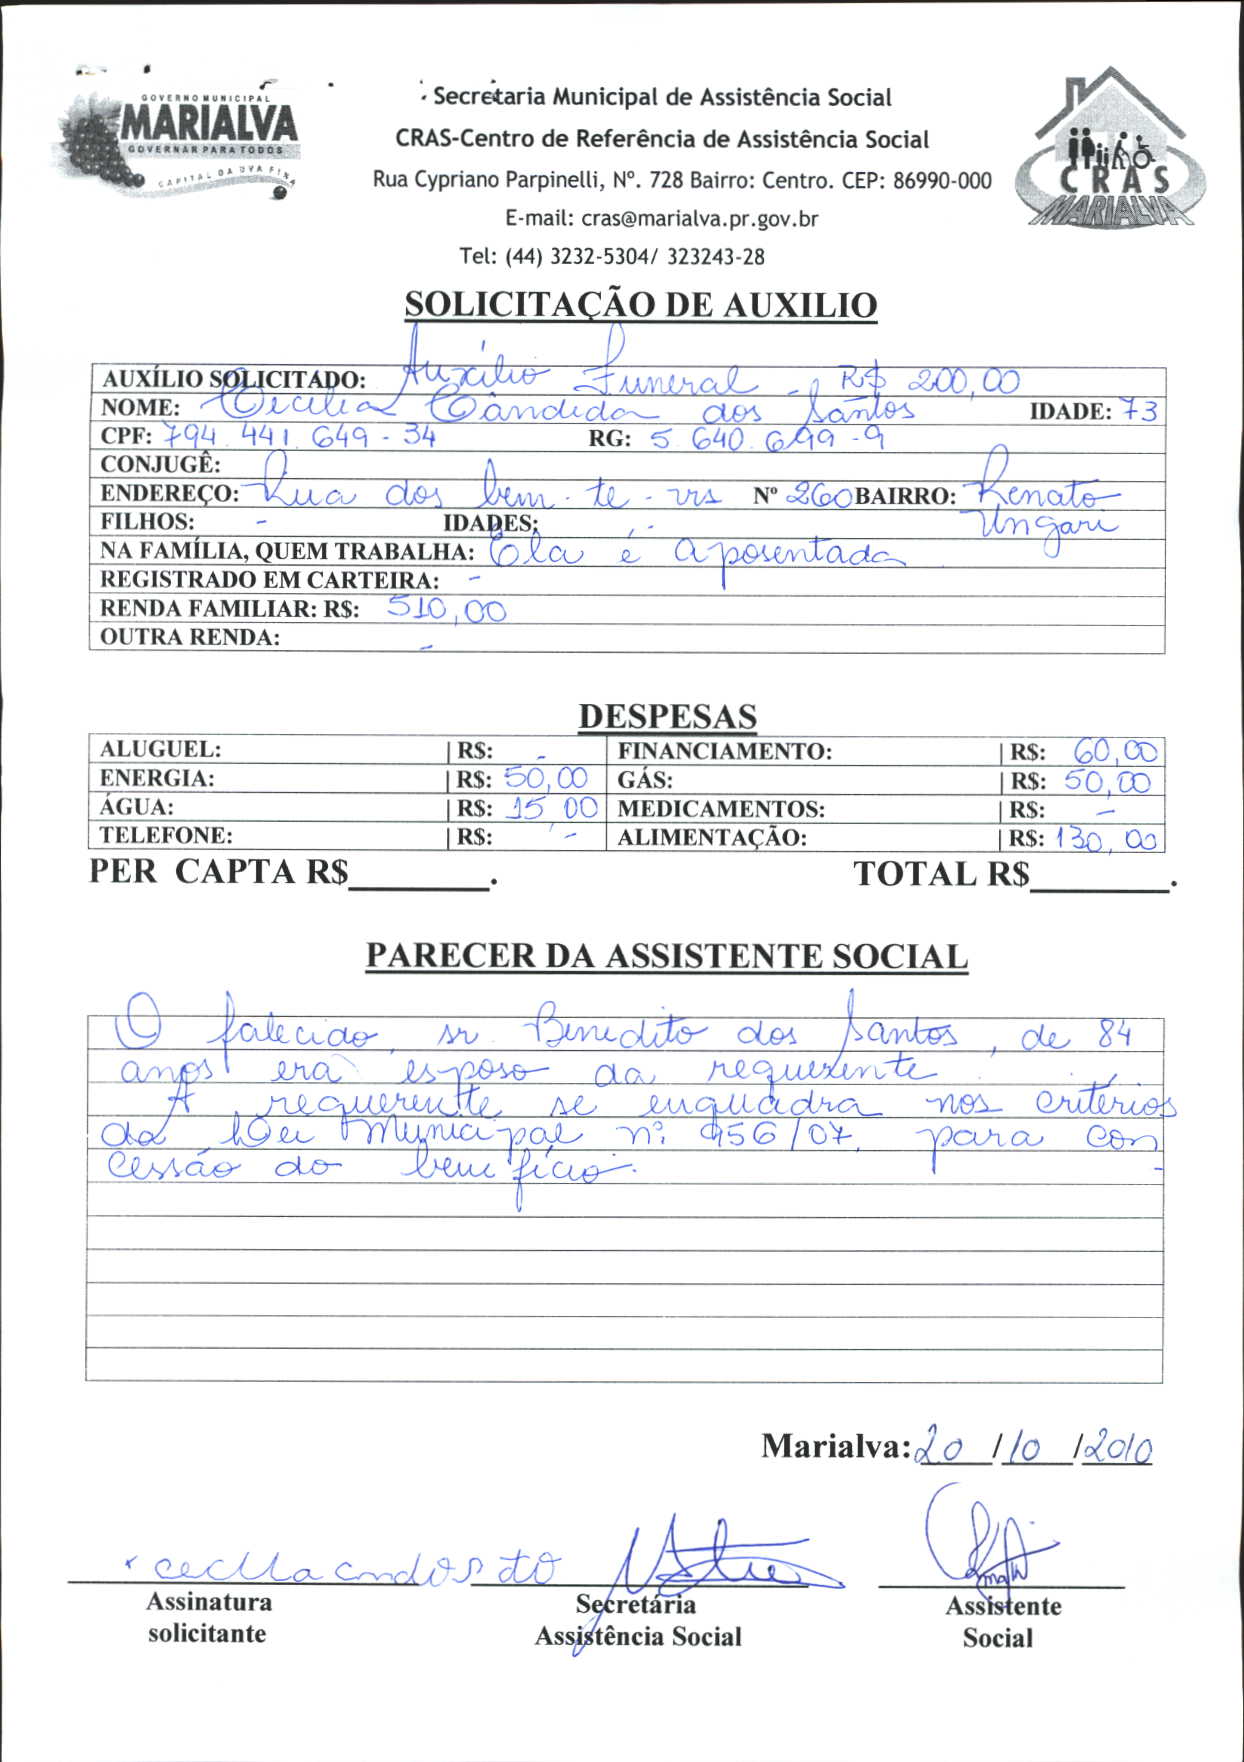 GOVERNO MUNICIPAL
MARIALVA
GOVERNAR PARA TODOS
CAPITAL DA UVA FINA
Secretaria Municipal de Assistência Social
CRAS-Centro de Referência de Assistência Social
Rua Cypriano Parpinelli, Nº. 728 Bairro: Centro. CEP: 86990-000
E-mail: cras@marialva.pr.gov.br
Tel: (44) 3232-5304/ 323243-28
CRAS
MARIALVA
SOLICITAÇÃO DE AUXILIO
AUXÍLIO SOLICITADO: Auxílio Funeral - R$ 200,00
NOME: Cecilia Cândida dos Santos IDADE: 73
CPF: 794.441.649-34 RG: 5.640.699-9
CONJUGÊ:
ENDEREÇO: Rua dos bem-te-vis Nº 260 BAIRRO: Renato
FILHOS: - IDADES: - Ungari
NA FAMÍLIA, QUEM TRABALHA: Ela é aposentada
REGISTRADO EM CARTEIRA: -
RENDA FAMILIAR: R$: 510,00
OUTRA RENDA: -
DESPESAS
ALUGUEL: | R$: - FINANCIAMENTO: | R$: 60,00
ENERGIA: | R$: 50,00 GÁS: | R$: 50,00
ÁGUA: | R$: 15,00 MEDICAMENTOS: | R$: -
TELEFONE: | R$: - ALIMENTAÇÃO: | R$: 130,00
PER CAPTA R$________. TOTAL R$________.
PARECER DA ASSISTENTE SOCIAL
O falecido, sr. Benedito dos Santos, de 84
anos era esposo da requerente.
A requerente se enquadra nos critérios
da Lei Municipal nº 956/07, para con
cessão do benefício.
Marialva: 20/10/2010
Assinatura
solicitante
Secretária
Assistência Social
Assistente
Social